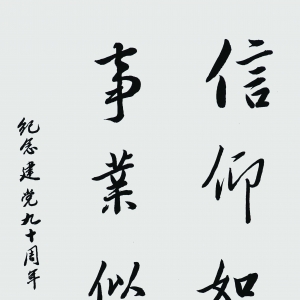 信仰如
事業似
纪念建党九十周年